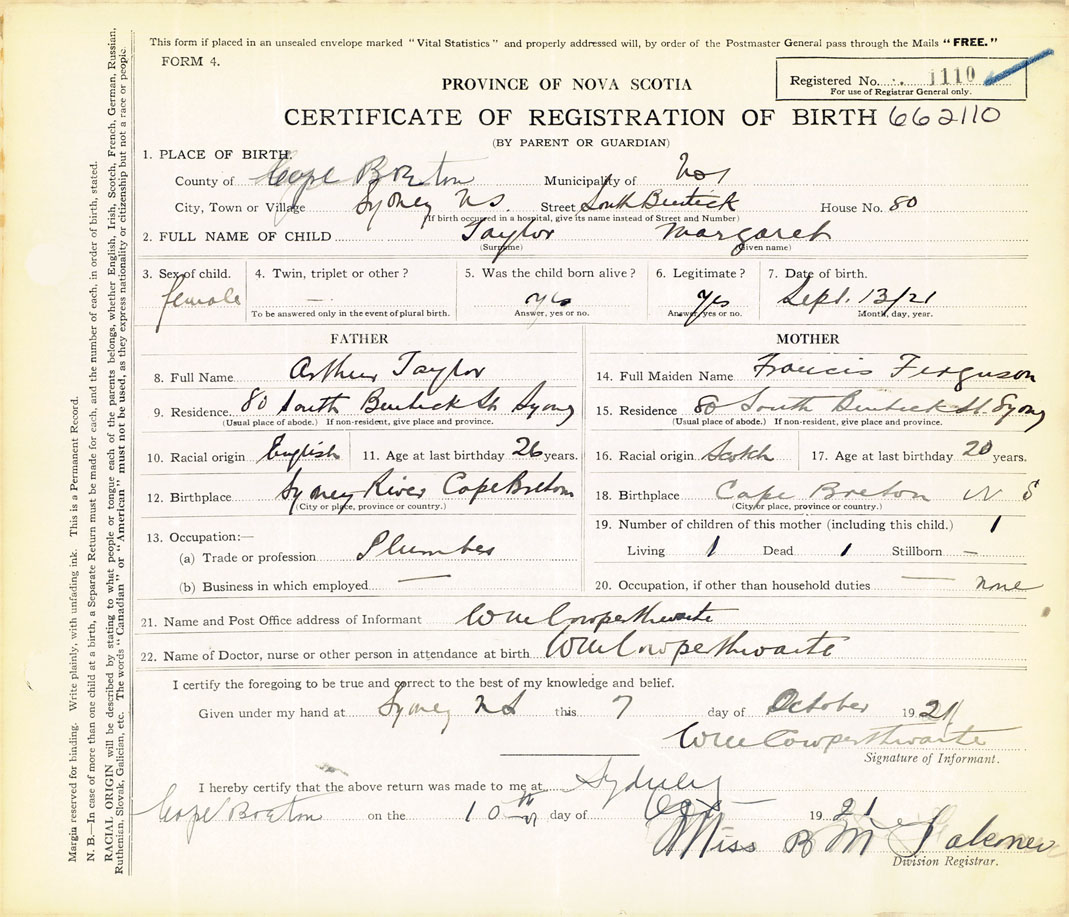 This form if placed in an unsealed envelope marked "Vital Statistics" and properly addressed will, by order of the Postmaster General pass through the Mails "FREE."
FORM 4.
Registered No. 1110
For use of Registrar General only.
PROVINCE OF NOVA SCOTIA
CERTIFICATE OF REGISTRATION OF BIRTH 662110
(BY PARENT OR GUARDIAN)
1. PLACE OF BIRTH.
County of Cape Breton Municipality of
City, Town or Village Sydney N.S. Street South Bentick House No. 80
(If birth occured in a hospital, give its name instead of Street and Number)
2. FULL NAME OF CHILD Taylor Margaret
(Surname) (Given name)
3. Sex of child. 4. Twin, triplet or other? 5. Was the child born alive? 6. Legitimate? 7. Date of birth.
female — yes yes Sept. 13/21
To be answered only in the event of plural birth. Answer, yes or no. Answer, yes or no. Month, day, year.
FATHER MOTHER
8. Full Name Arthur Taylor 14. Full Maiden Name Francis Ferguson
9. Residence 80 South Bentick St Sydney 15. Residence 80 South Bentick St. Sydney
(Usual place of abode.) If non-resident, give place and province. (Usual place of abode.) If non-resident, give place and province.
10. Racial origin English 11. Age at last birthday 26 years. 16. Racial origin Scotch 17. Age at last birthday 20 years.
12. Birthplace Sydney River Cape Breton 18. Birthplace Cape Breton N S
(City or place, province or country.) (City or place, province or country.)
19. Number of children of this mother (including this child.) 1
13. Occupation:—
(a) Trade or profession Plumber Living 1 Dead 1 Stillborn —
(b) Business in which employed — 20. Occupation, if other than household duties — none
21. Name and Post Office address of Informant Wm Cowperthwaite
22. Name of Doctor, nurse or other person in attendance at birth Wm Cowperthwaite
I certify the foregoing to be true and correct to the best of my knowledge and belief.
Given under my hand at Sydney N S this 7 day of October 1921
Wm Cowperthwaite
Signature of Informant.
I hereby certify that the above return was made to me at Sydney
Cape Breton on the 10th day of Oct 1921
Miss B M Falconer
Division Registrar.
Margin reserved for binding. Write plainly, with unfading ink. This is a Permanent Record.
N. B.—In case of more than one child at a birth, a Separate Return must be made for each, and the number of each, in order of birth, stated.
RACIAL ORIGIN will be described by stating to what people or tongue each of the parents belongs, whether English, Irish, Scotch, French, German, Russian,
Ruthenian, Slovak, Galician, etc. The words "Canadian" or "American" must not be used, as they express nationality or citizenship but not a race or people.